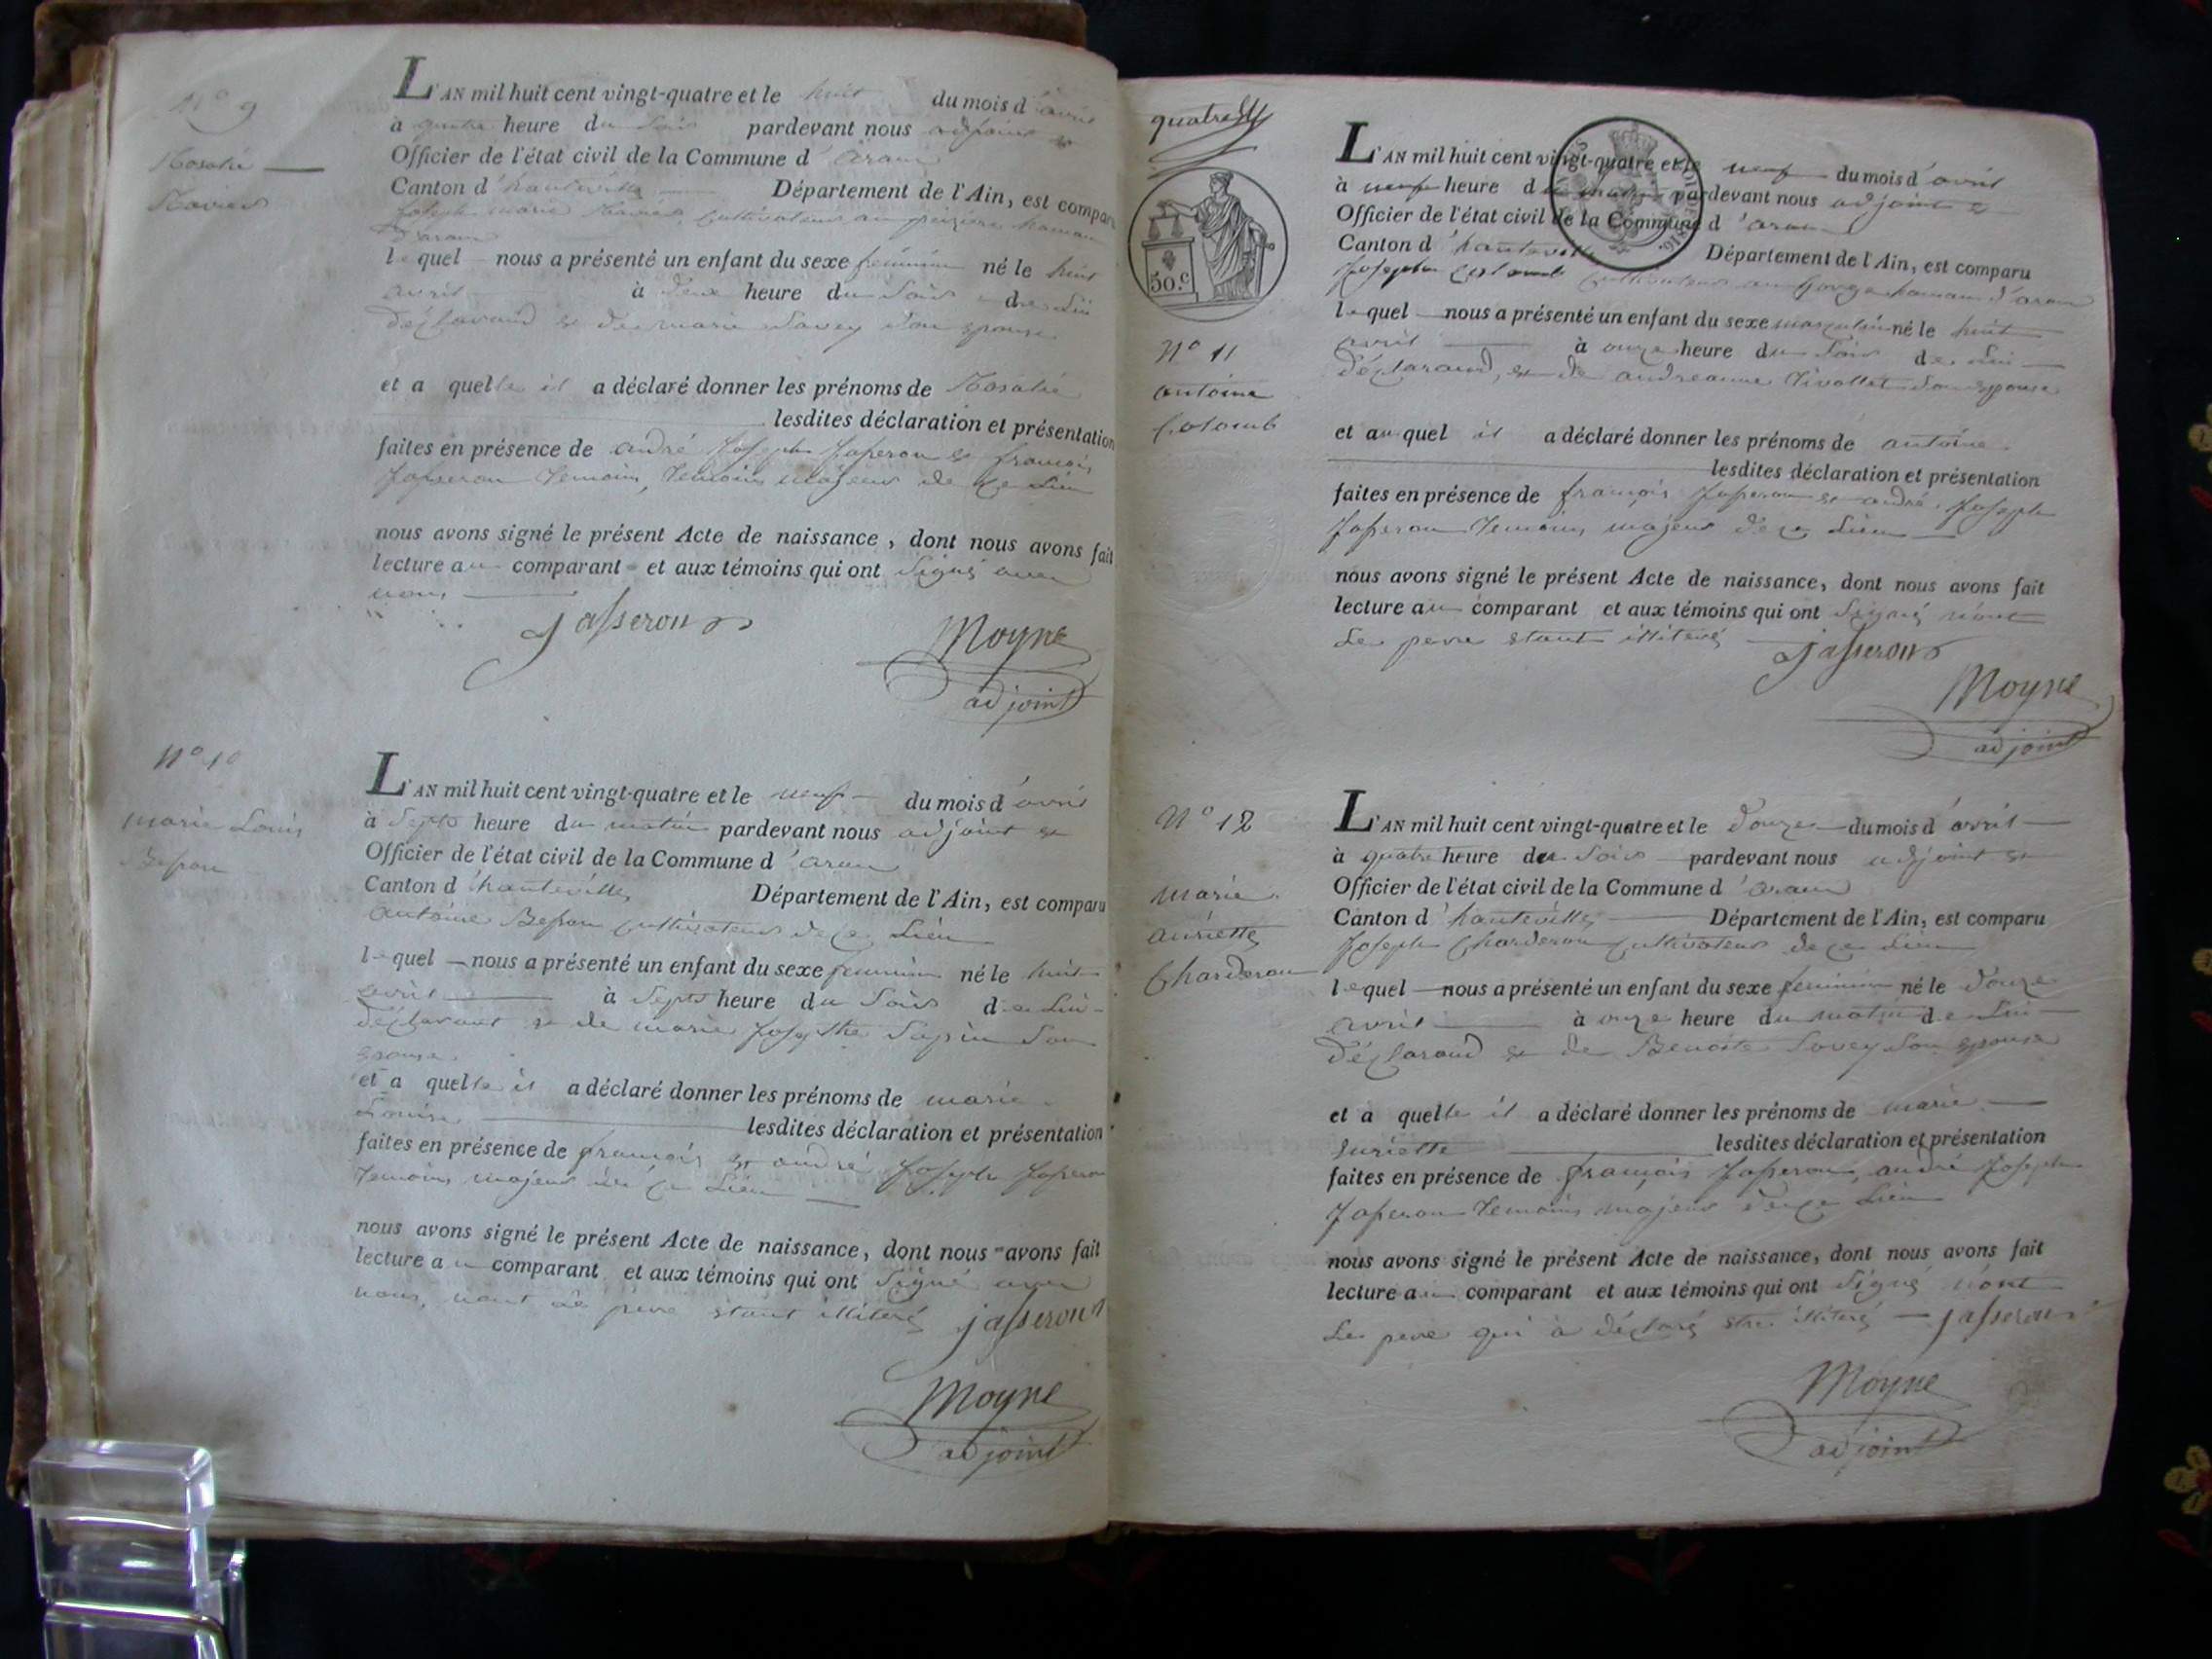 N° 9
Rosalie
Ravier
L'AN mil huit cent vingt-quatre et le huit du mois d'avril
à quatre heure du soir pardevant nous adjoint et
Officier de l'état civil de la Commune d'aran
Canton d'hauteville Département de l'Ain, est comparu
Joseph marie Ravier cultivateur au hamau
d'aran
lequel nous a présenté un enfant du sexe feminin né le huit
avril à deux heure du soir de lui
déclarand et de marie Savey son epouse
et a quelle il a déclaré donner les prénoms de Rosalie
lesdites déclaration et présentation
faites en présence de andré Joseph Jasseron et françois
Jasseron temoins, temoins majeur de ce Lieu
nous avons signé le présent Acte de naissance, dont nous avons fait
lecture au comparant et aux témoins qui ont signé avec
nous
Jasseron
Moyne
adjoint
N° 10
marie Louis
Besson
L'AN mil huit cent vingt-quatre et le neuf du mois d'avril
à septs heure du matin pardevant nous adjoint et
Officier de l'état civil de la Commune d'aran
Canton d'hauteville Département de l'Ain, est comparu
antoine Besson cultivateur de ce Lieu
lequel nous a présenté un enfant du sexe feminin né le huit
avril à septs heure du soir de lui
déclarant et de marie Josephte Sapin son
epouse
et a quelle il a déclaré donner les prénoms de marie
Louise lesdites déclaration et présentation
faites en présence de françois et andré Joseph Jasseron
temoins majeur de ce Lieu
nous avons signé le présent Acte de naissance, dont nous avons fait
lecture au comparant et aux témoins qui ont signé avec
nous, nont le pere etant illiteré
jasseron
Moyne
adjoint
quatre
50.c
N° 11
antoine
Colomb
L'AN mil huit cent vingt-quatre et le neuf du mois d'avril
à neuf heure du matin pardevant nous adjoint et
Officier de l'état civil de la Commune d'aran
Canton d'hauteville Département de l'Ain, est comparu
Joseph Colomb cultivateur au Gorge hamau d'aran
lequel nous a présenté un enfant du sexe masculin né le huit
avril à onze heure du soir de lui
déclarand, et de andreanne Tivollet son epouse
et au quel il a déclaré donner les prénoms de antoine
lesdites déclaration et présentation
faites en présence de françois Jasseron et andré Joseph
Jasseron temoins majeur de ce Lieu
nous avons signé le présent Acte de naissance, dont nous avons fait
lecture au comparant et aux témoins qui ont signé nont
Le pere etant illiteré
jasseron
Moyne
adjoint
N° 12
marie
auriette
Charderon
L'AN mil huit cent vingt-quatre et le douze du mois d'avril
à quatre heure du soir pardevant nous adjoint et
Officier de l'état civil de la Commune d'aran
Canton d'hauteville Département de l'Ain, est comparu
Joseph Charderon cultivateur de ce Lieu
lequel nous a présenté un enfant du sexe feminin né le douze
avril à onze heure du matin de lui
déclarand et de Benoite Savey son epouse
et a quelle il a déclaré donner les prénoms de marie
huriette lesdites déclaration et présentation
faites en présence de françois Jasseron, andré Joseph
Jasseron temoins majeur de ce Lieu
nous avons signé le présent Acte de naissance, dont nous avons fait
lecture au comparant et aux témoins qui ont signé nont
Le pere qui à déclaré etre illiteré
jasseron
Moyne
adjoint